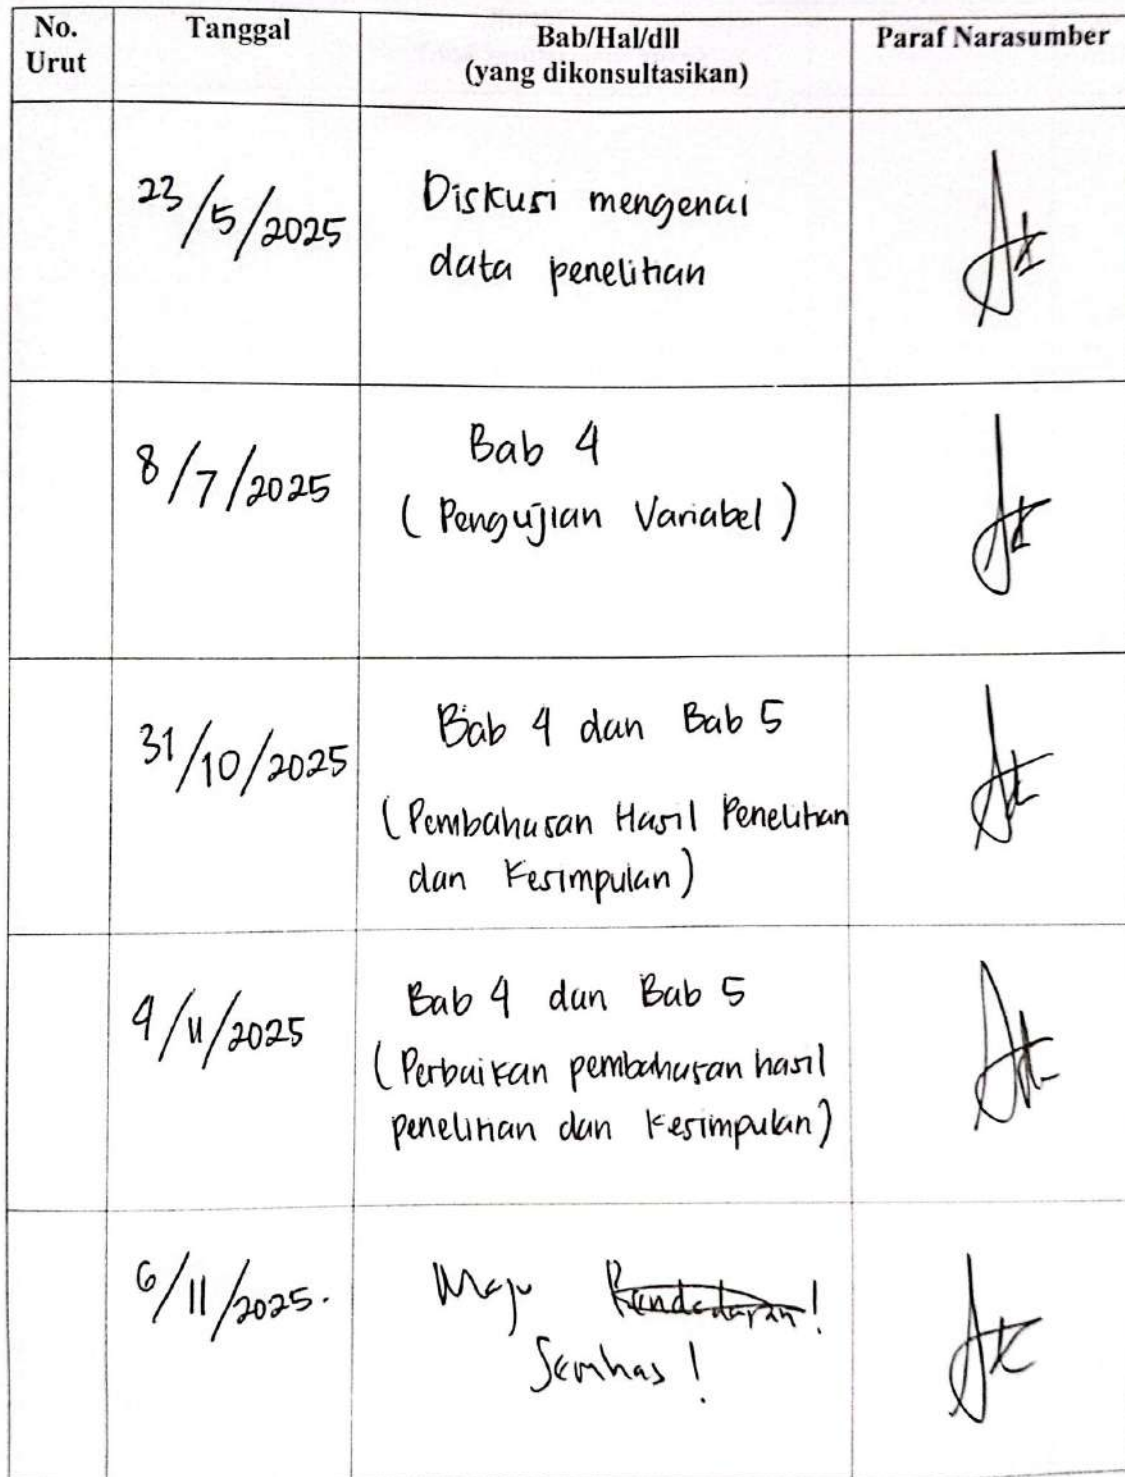 No. Urut Tanggal Bab/Hal/dll (yang dikonsultasikan) Paraf Narasumber
23/5/2025 Diskusi mengenai
data penelitian
8/7/2025 Bab 4
(Pengujian Variabel)
31/10/2025 Bab 4 dan Bab 5
(Pembahasan Hasil Penelitian
dan Kesimpulan)
4/11/2025 Bab 4 dan Bab 5
(Perbaikan pembahasan hasil
penelitian dan Kesimpulan)
6/11/2025. Maju Pendadaran!
Semhas!